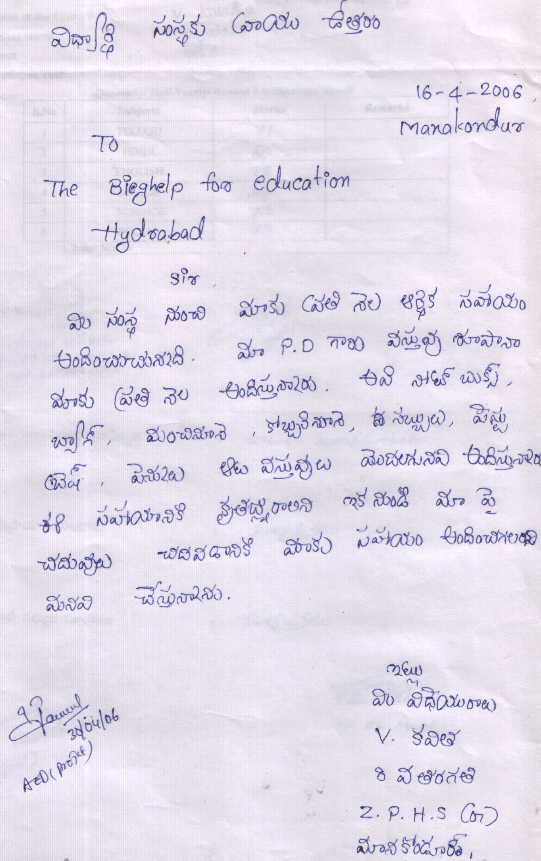 విద్యార్థి సంస్థకు వ్రాయు ఉత్తరం
16-4-2006
Manakondur
To
The Bieghelp for education
Hydrabad
Sir,
మీ సంస్థ నుంచి మాకు ప్రతి నెల ఆర్థిక సహాయం
అందించుచున్నది. మా P.D గారు వస్తువు రూపానా
మాకు ప్రతి నెల అందిస్తున్నారు. అవి నోట్ బుక్స్,
బ్యాగ్, మంచినూనె, కొబ్బరినూనె, సబ్బులు, పేస్టు
బ్రష్, పెన్నులు ఆట వస్తువులు మొదలగునవి అందిస్తున్నారు
ఈ సహాయానికి కృతజ్ఞురాలిని ఇక నుండి మా పై
చదువులు చదవడానికి మాకు సహాయం అందించగలరని
మనవి చేస్తున్నాను.
ఇట్లు
మీ విధేయురాలు
V. కవిత
8 వ తరగతి
Z.P.H.S
మానకొండూర్,
30/04/06